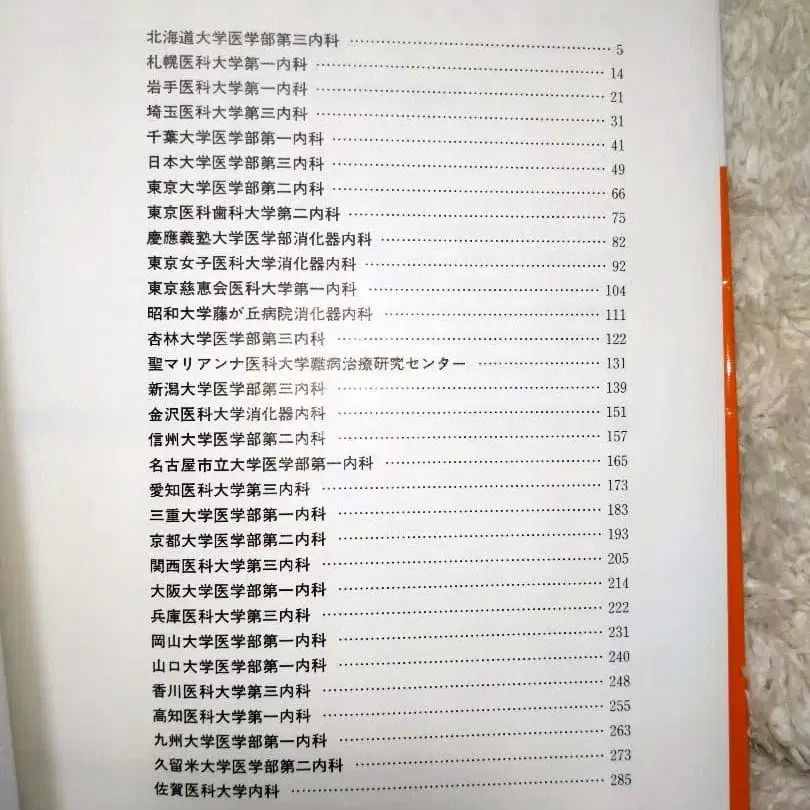 北海道大学医学部第三内科 …… 5
札幌医科大学第一内科 …… 14
岩手医科大学第一内科 …… 21
埼玉医科大学第三内科 …… 31
千葉大学医学部第一内科 …… 41
日本大学医学部第三内科 …… 49
東京大学医学部第二内科 …… 66
東京医科歯科大学第二内科 …… 75
慶應義塾大学医学部消化器内科 …… 82
東京女子医科大学消化器内科 …… 92
東京慈恵会医科大学第一内科 …… 104
昭和大学藤が丘病院消化器内科 …… 111
杏林大学医学部第三内科 …… 122
聖マリアンナ医科大学難病治療研究センター …… 131
新潟大学医学部第三内科 …… 139
金沢医科大学消化器内科 …… 151
信州大学医学部第二内科 …… 157
名古屋市立大学医学部第一内科 …… 165
愛知医科大学第三内科 …… 173
三重大学医学部第一内科 …… 183
京都大学医学部第二内科 …… 193
関西医科大学第三内科 …… 205
大阪大学医学部第一内科 …… 214
兵庫医科大学第三内科 …… 222
岡山大学医学部第一内科 …… 231
山口大学医学部第一内科 …… 240
香川医科大学第三内科 …… 248
高知医科大学第一内科 …… 255
九州大学医学部第一内科 …… 263
久留米大学医学部第二内科 …… 273
佐賀医科大学内科 …… 285